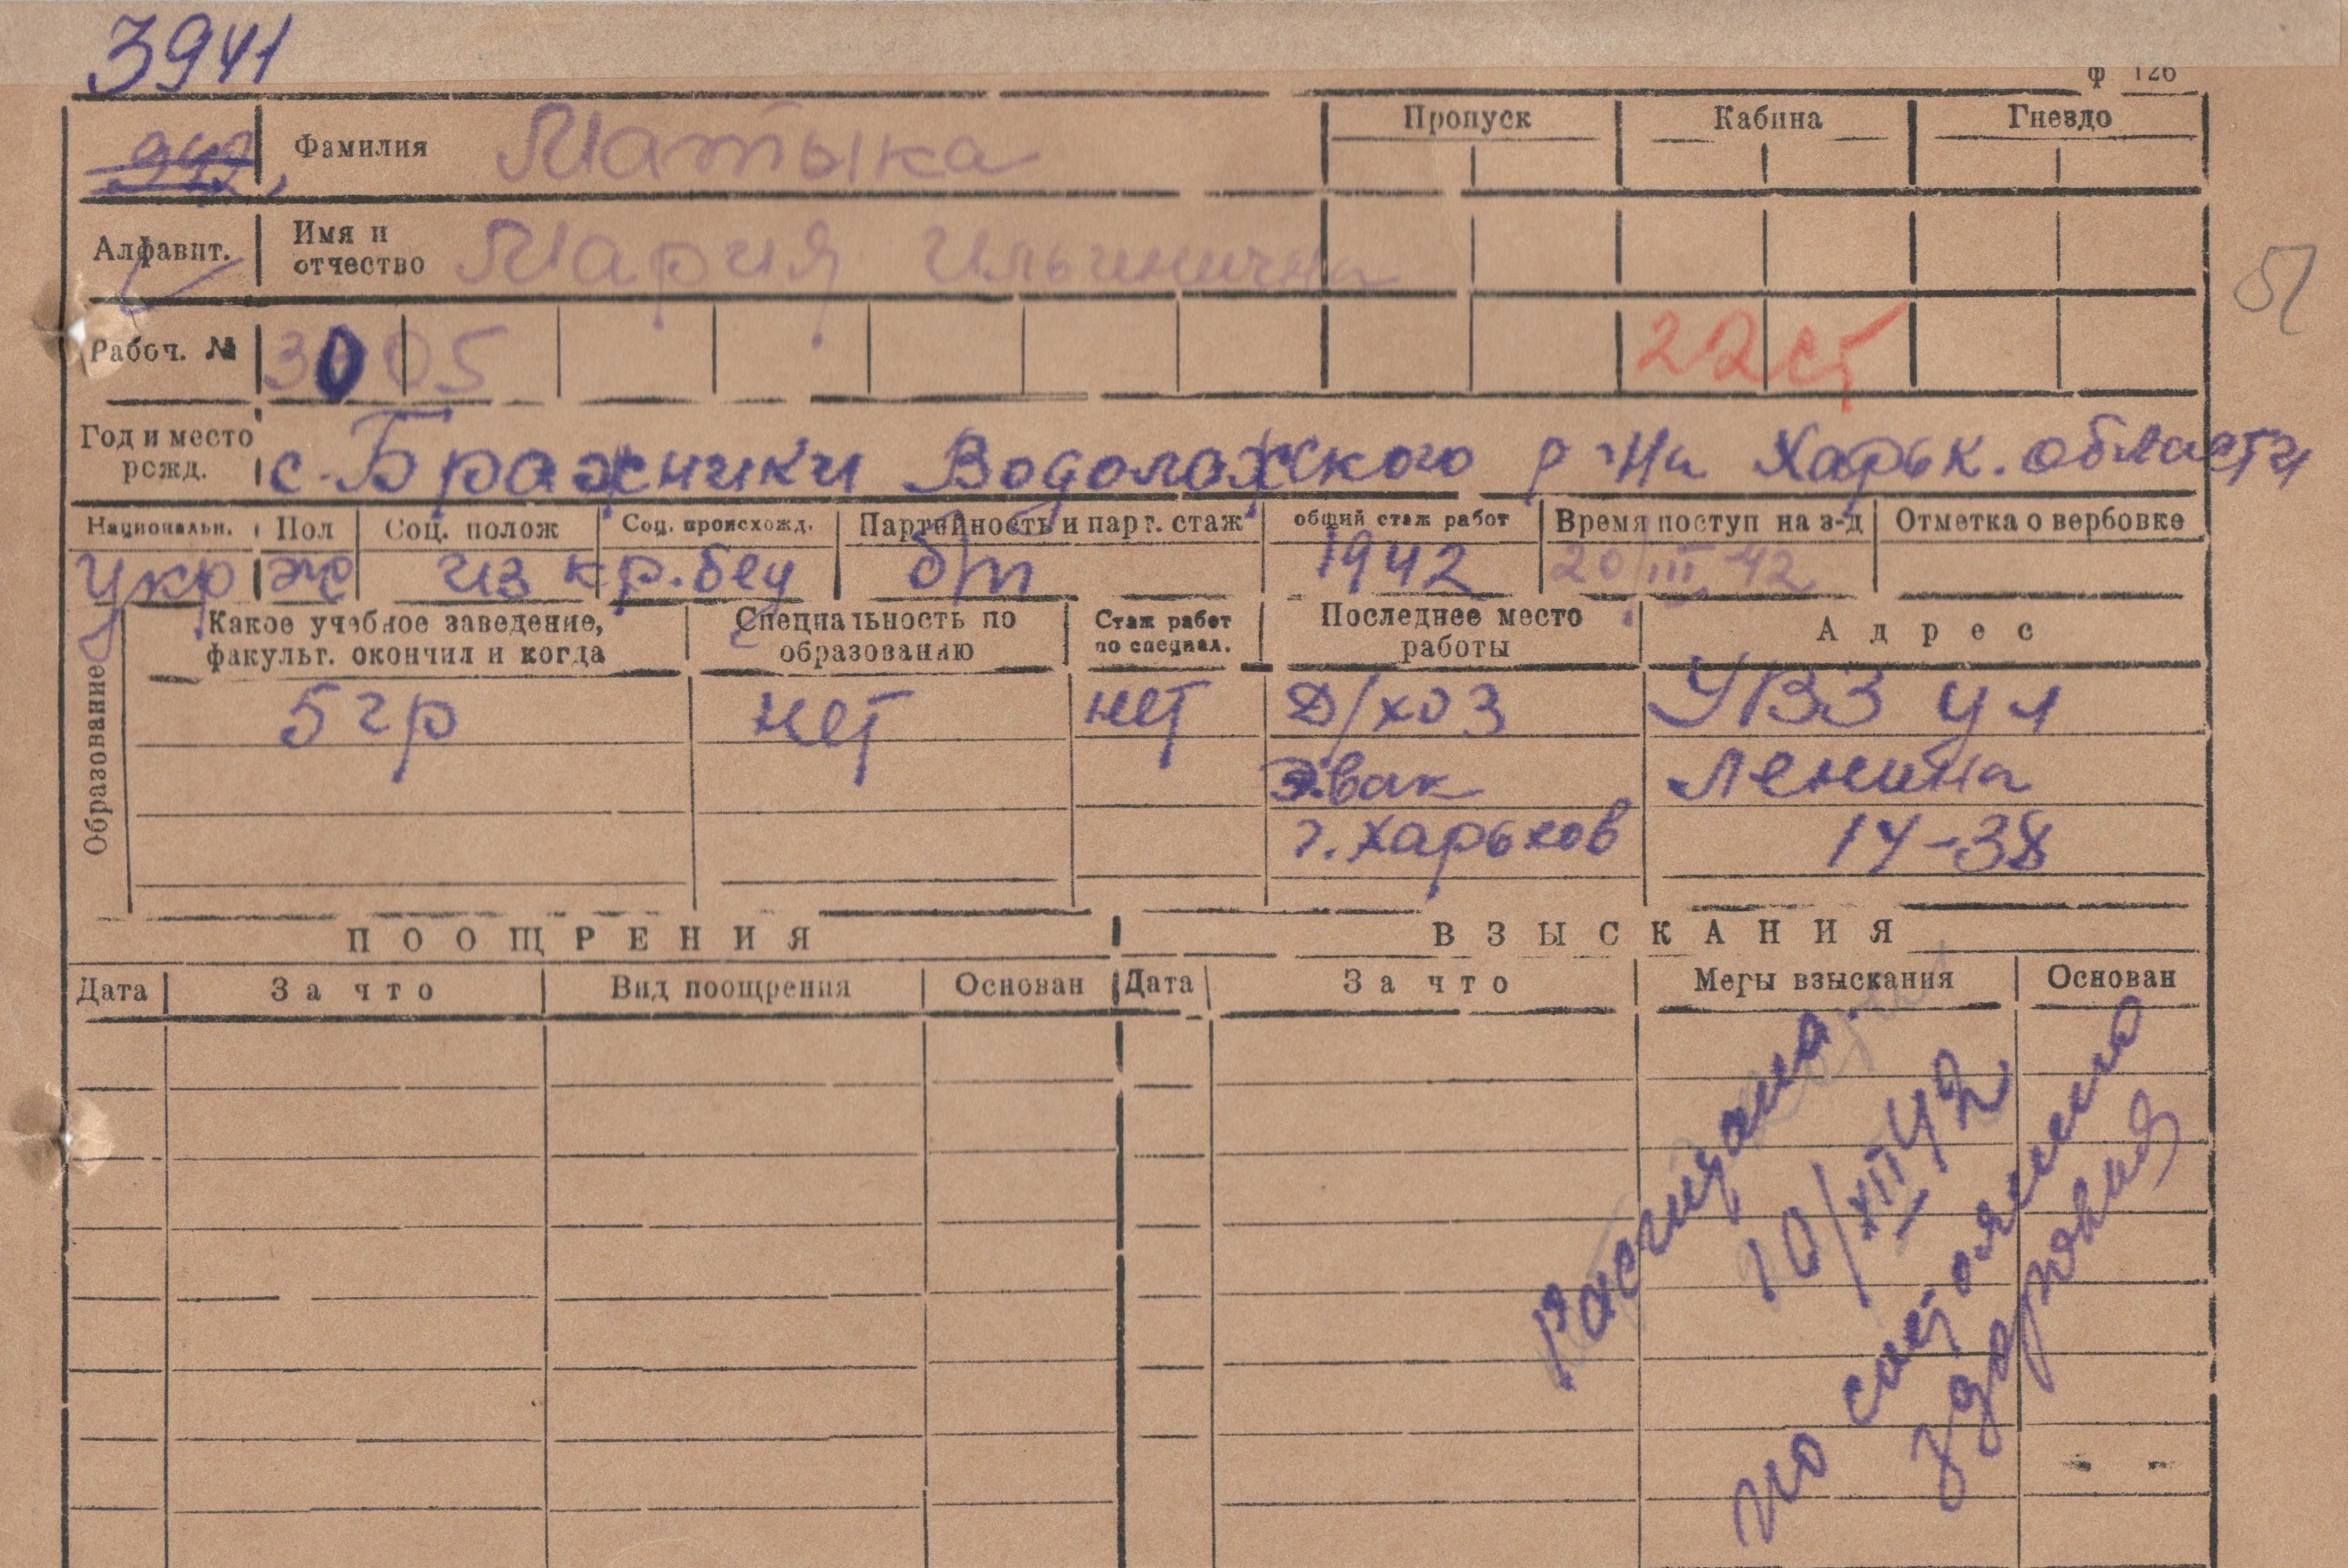 3941
ф 126
942
Фамилия Матыка Пропуск Кабина Гнездо
Алфавит. Имя и отчество Мария Ильинична
51
Рабоч. № 3005 22 ст
Год и место рожд. с. Бражники Водолажского р-на Харьк. области
Национальн. Пол Соц. полож Соц. происхожд. Партийность и парт. стаж общий стаж работ Время поступ на з-д Отметка о вербовке
укр ж из кр. бед б/п 1942 20/III 42
Образование
Какое учебное заведение, факульт. окончил и когда Специальность по образованию Стаж работ по специал. Последнее место работы Адрес
5 гр нет нет д/хоз УВЗ ул
эвак Ленина
г. Харьков 14-38
ПООЩРЕНИЯ ВЗЫСКАНИЯ
Дата За что Вид поощрения Основан Дата За что Меры взыскания Основан
10/XII 42
по
здоровия